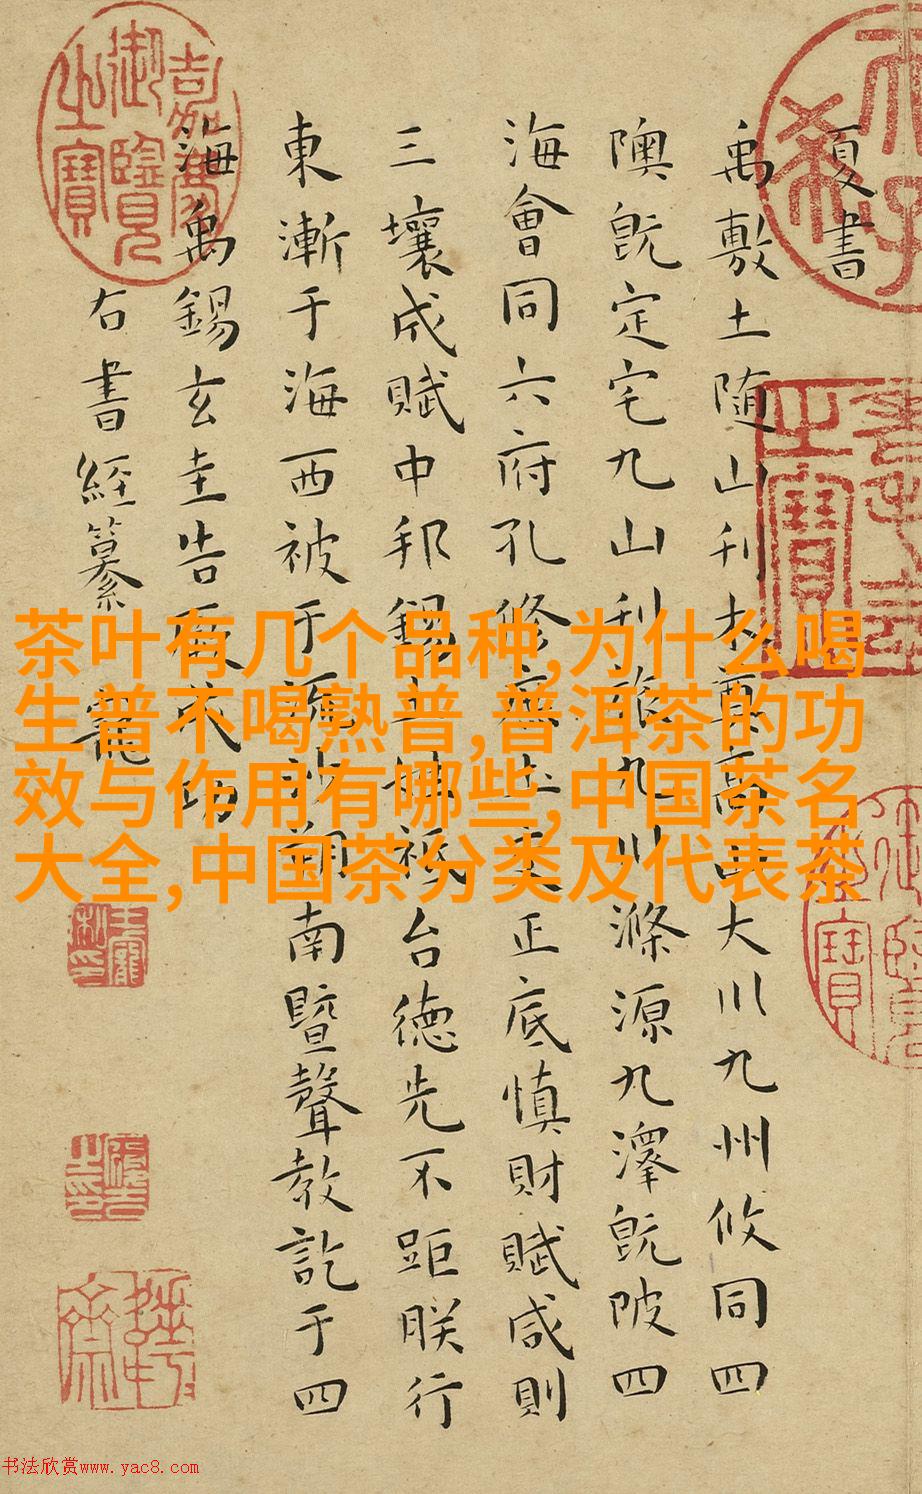 夏書
禹敷土随山刊木奠高山大川九州攸同四
隩既定宅九山刊旅九川滌源九澤既陂四
海會同六府孔修庶土交正底慎財賦咸則
三壤成賦中邦錫土姓祗台德先不距朕行
東漸于海西被于流沙朔南暨聲教訖于四
海禹錫玄圭告厥成功
右書經纂 寵
嘉慶御覽之寶
茶叶有几个品种,为什么喝
生普不喝熟普,普洱茶的功
效与作用有哪些,中国茶名
大全,中国茶分类及代表茶
书法欣赏www.yac8.com